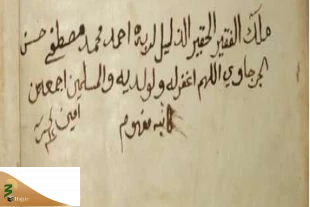 ملك الفقير الحقير الذليل لربه احمد محمد مصطفى حسن
الجرجاوي اللهم اغفر له ولوالديه والمسلمين اجمعين
امين
كاتبه